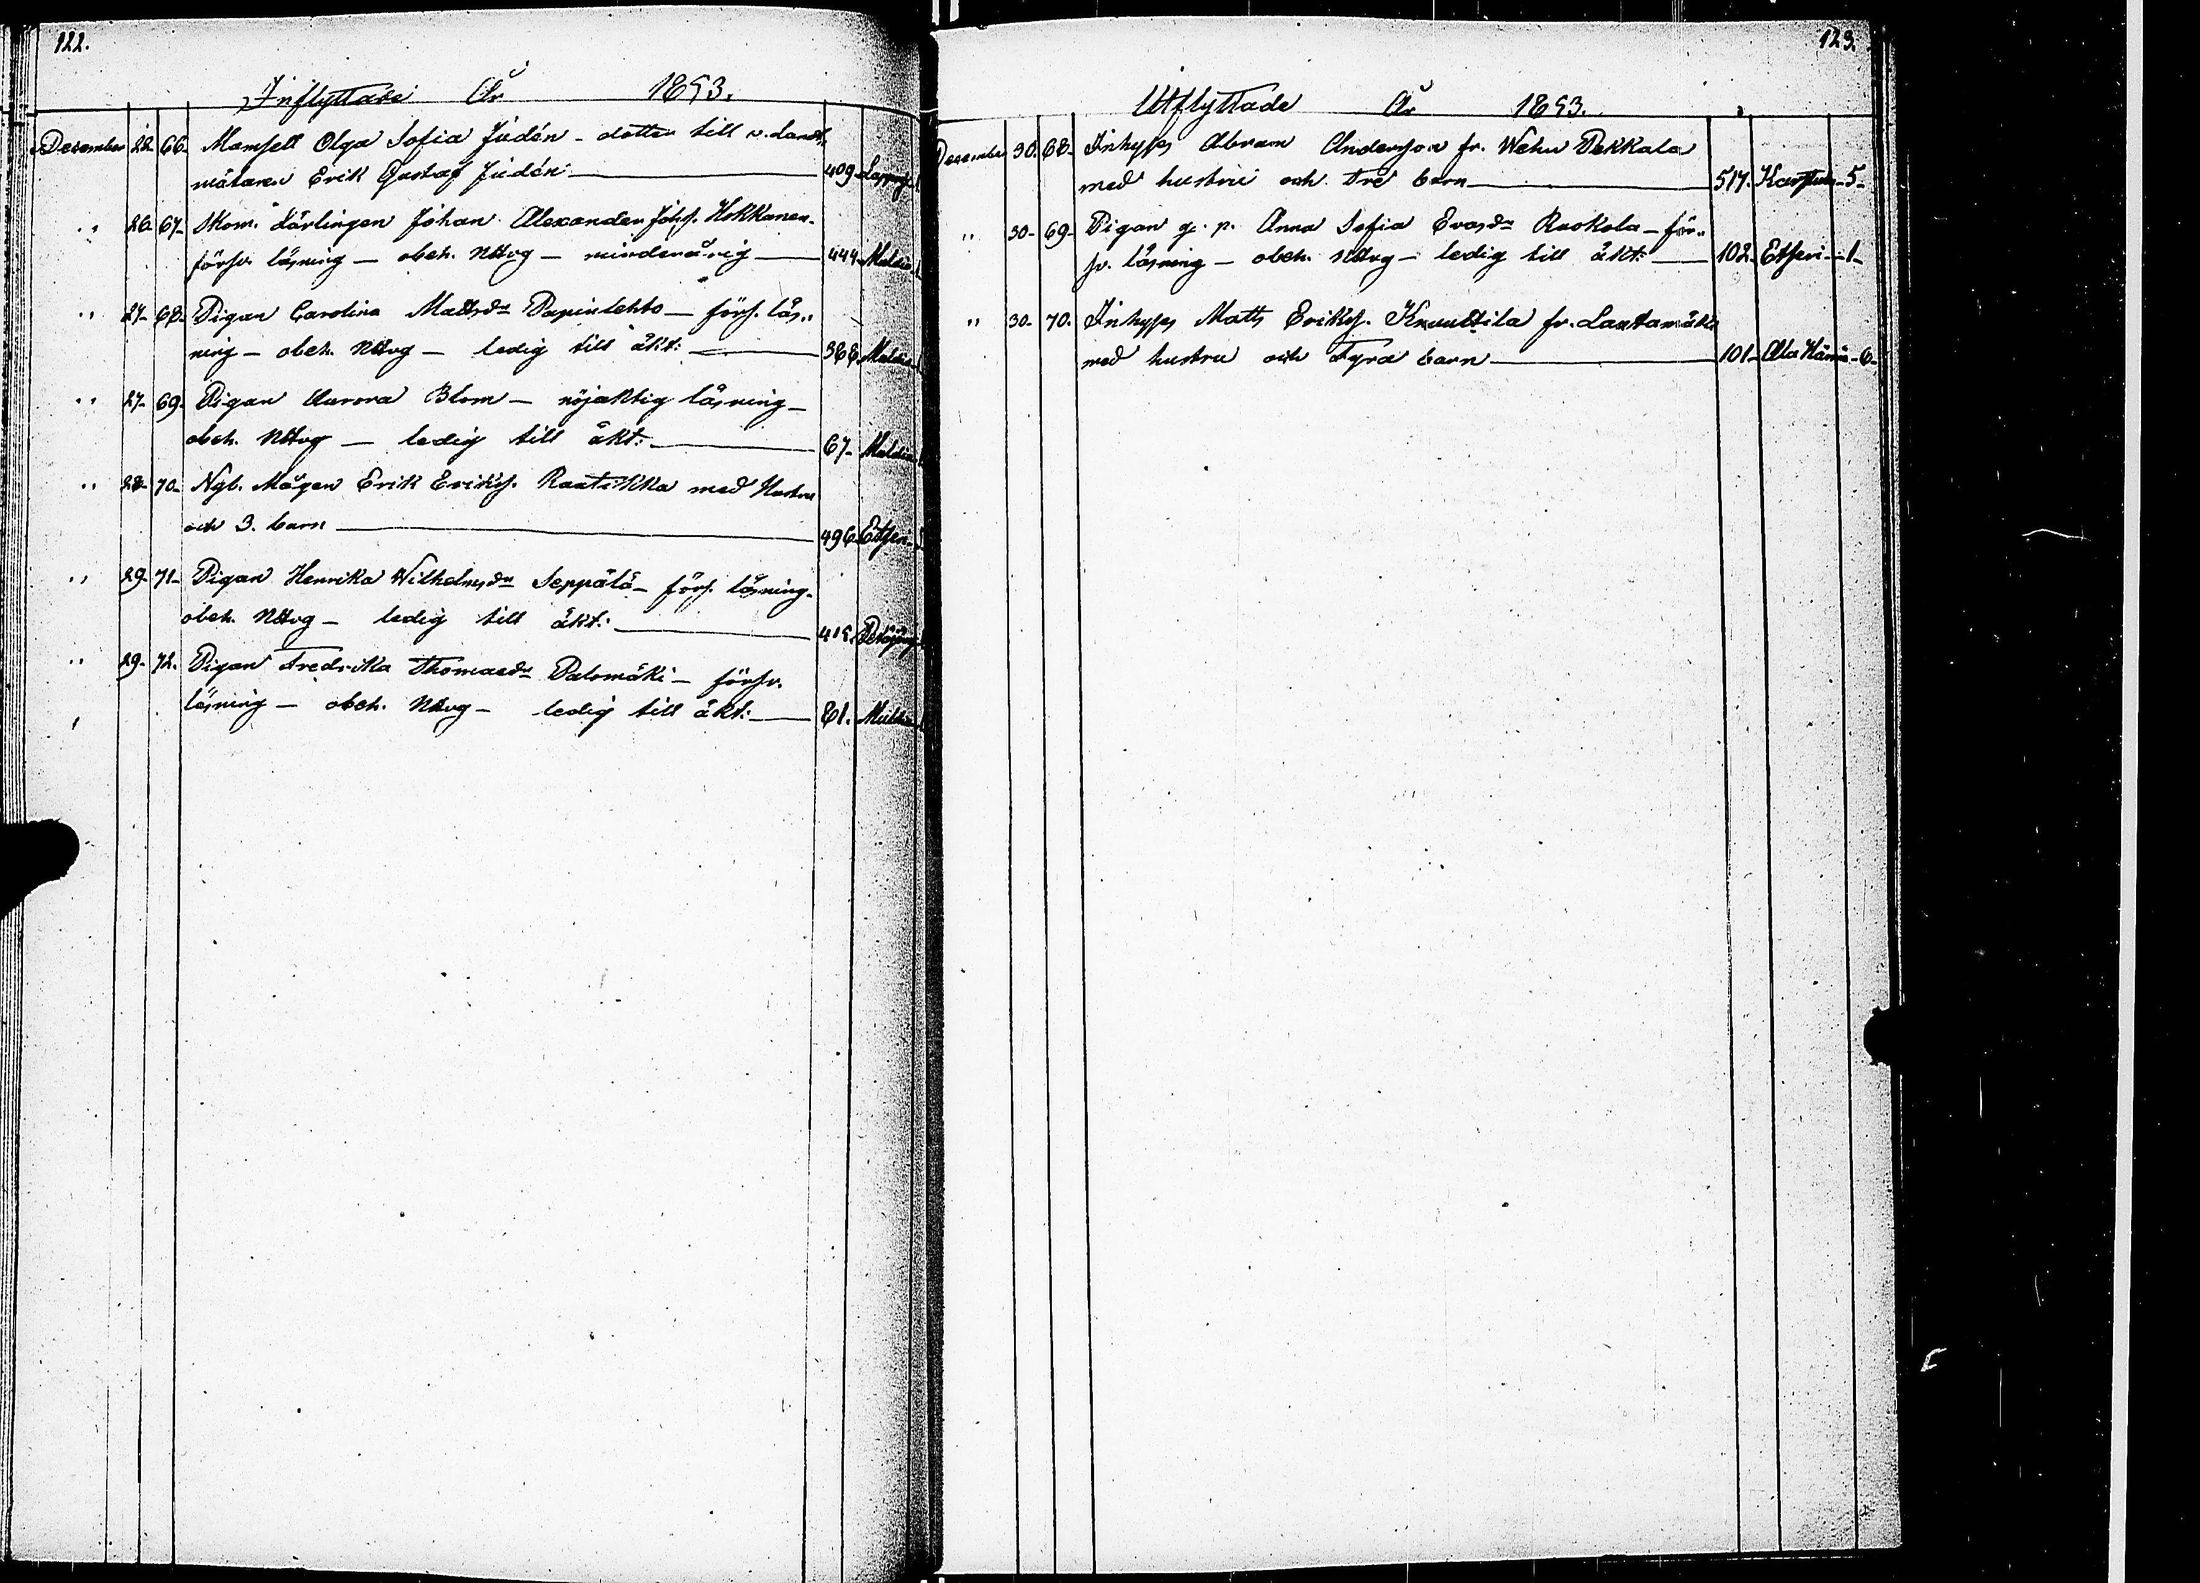 122.
Inflyttade År 1893.
December 22. 66. Mamsell Olga Sofia Judén - dotter till v. Landt-
mätaren Erik Gustaf Judén — 409.
" 26. 67. Skom. Lärlingen Johan Alexander Johss. Hokkanen -
försv. läsning — obeh. Nttvg — minderårig — 444. Multia
" 27. 68. Pigan Carolina Mattsdr —förs. läs-
ning — obeh. Nttvg — ledig till äkt: — 388 Multia
" 27. 69. Pigan Aurora Blom — nöjaktig läsning —
obeh. Nttvg — ledig till äkt: — 67 Multia
" 28. 70. Nyb. Mågen Erik Erikss. Rautikka med Hustru
och 3. barn — 496 Etseri
" 29. 71. Pigan Henrika Wilhelmsdr Seppälä — förs. läsning -
obeh. Nttvg — ledig till äkt: — 418.
" 29. 72. Pigan Fredrika Thomasdr Palomäki — försv.
läsning — obeh. Nttvg — ledig till äkt: — 81. Multia
123.
Utflyttade År 1893.
December 30. 68. Inhyses Abram Andersson fr. Wehu Pekkala
med hustru och tre barn — 517. Karstula - 5 -
" 30. 69. Pigan g. p. Anna Sofia Evasdr Raokola — för-
sv. läsning — obeh. Nttvg — ledig till äkt: — 102. Etseri - 1 -
" 30. 70. Inhyses Matts Erikss. Knuuttila fr. Lautamäki
med hustru och Fyra barn — 101 - Ala Härmä - 6 -